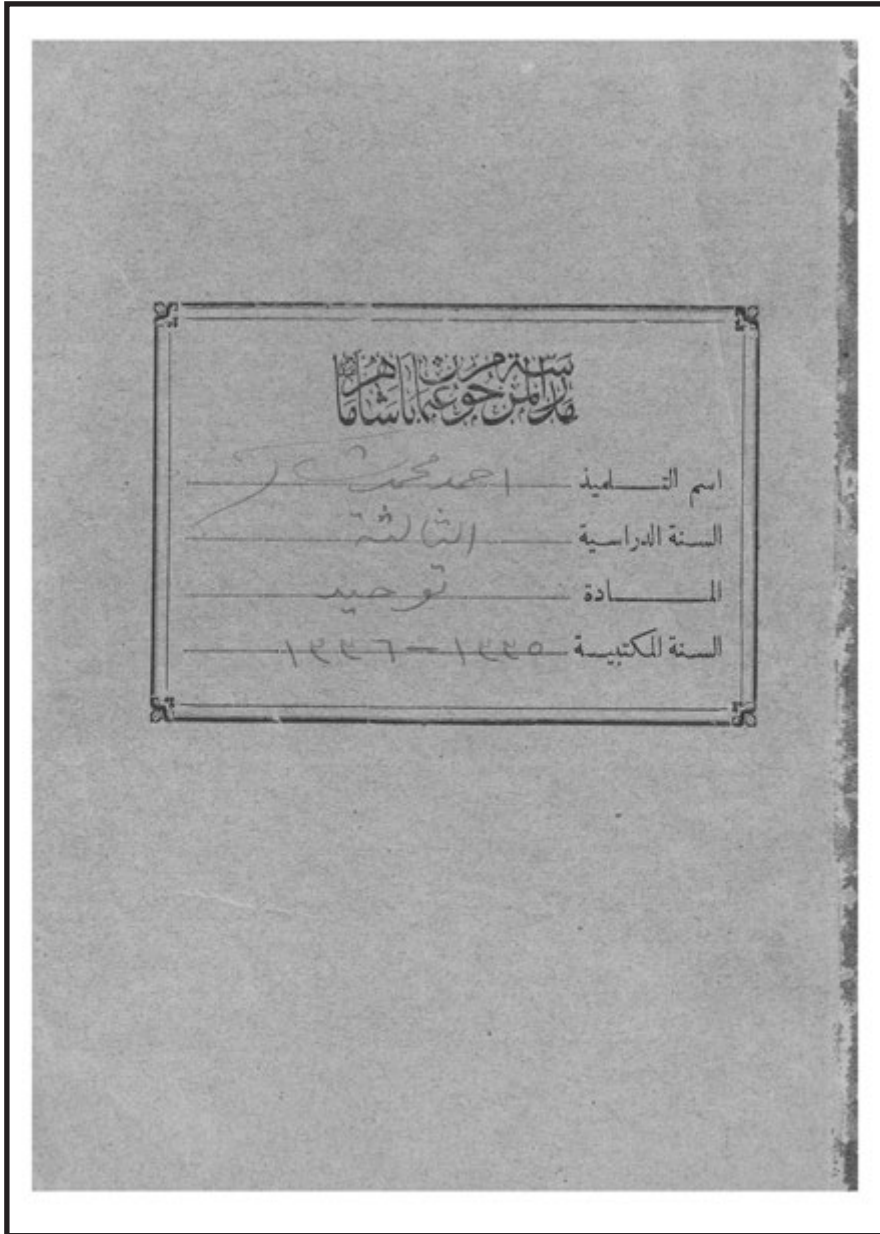 مدرسة المرحوم عثمان باشا ماهر
اسم التلميذ احمد محمد شاكر
السنة الدراسية الثالثة
المادة توحيد
السنة المكتبية ١٣٣٥ — ١٣٣٦